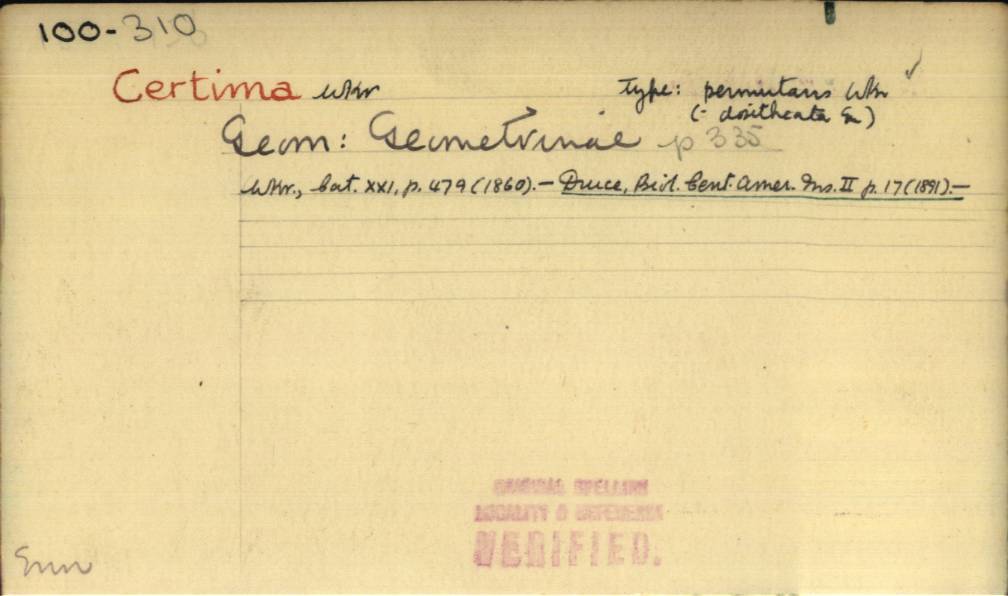 100-310
Certima Wkr type: permutans Wkr ✓
(= dositheata Gn)
Geom: Geometrinae p 335
Wkr., Cat. XXI, p. 479 (1860). — Druce, Biol. Cent. Amer. Ins. II p. 17 (1891). —
ORIGINAL SPELLING
LOCALITY & REFERENCE
VERIFIED.
Enn